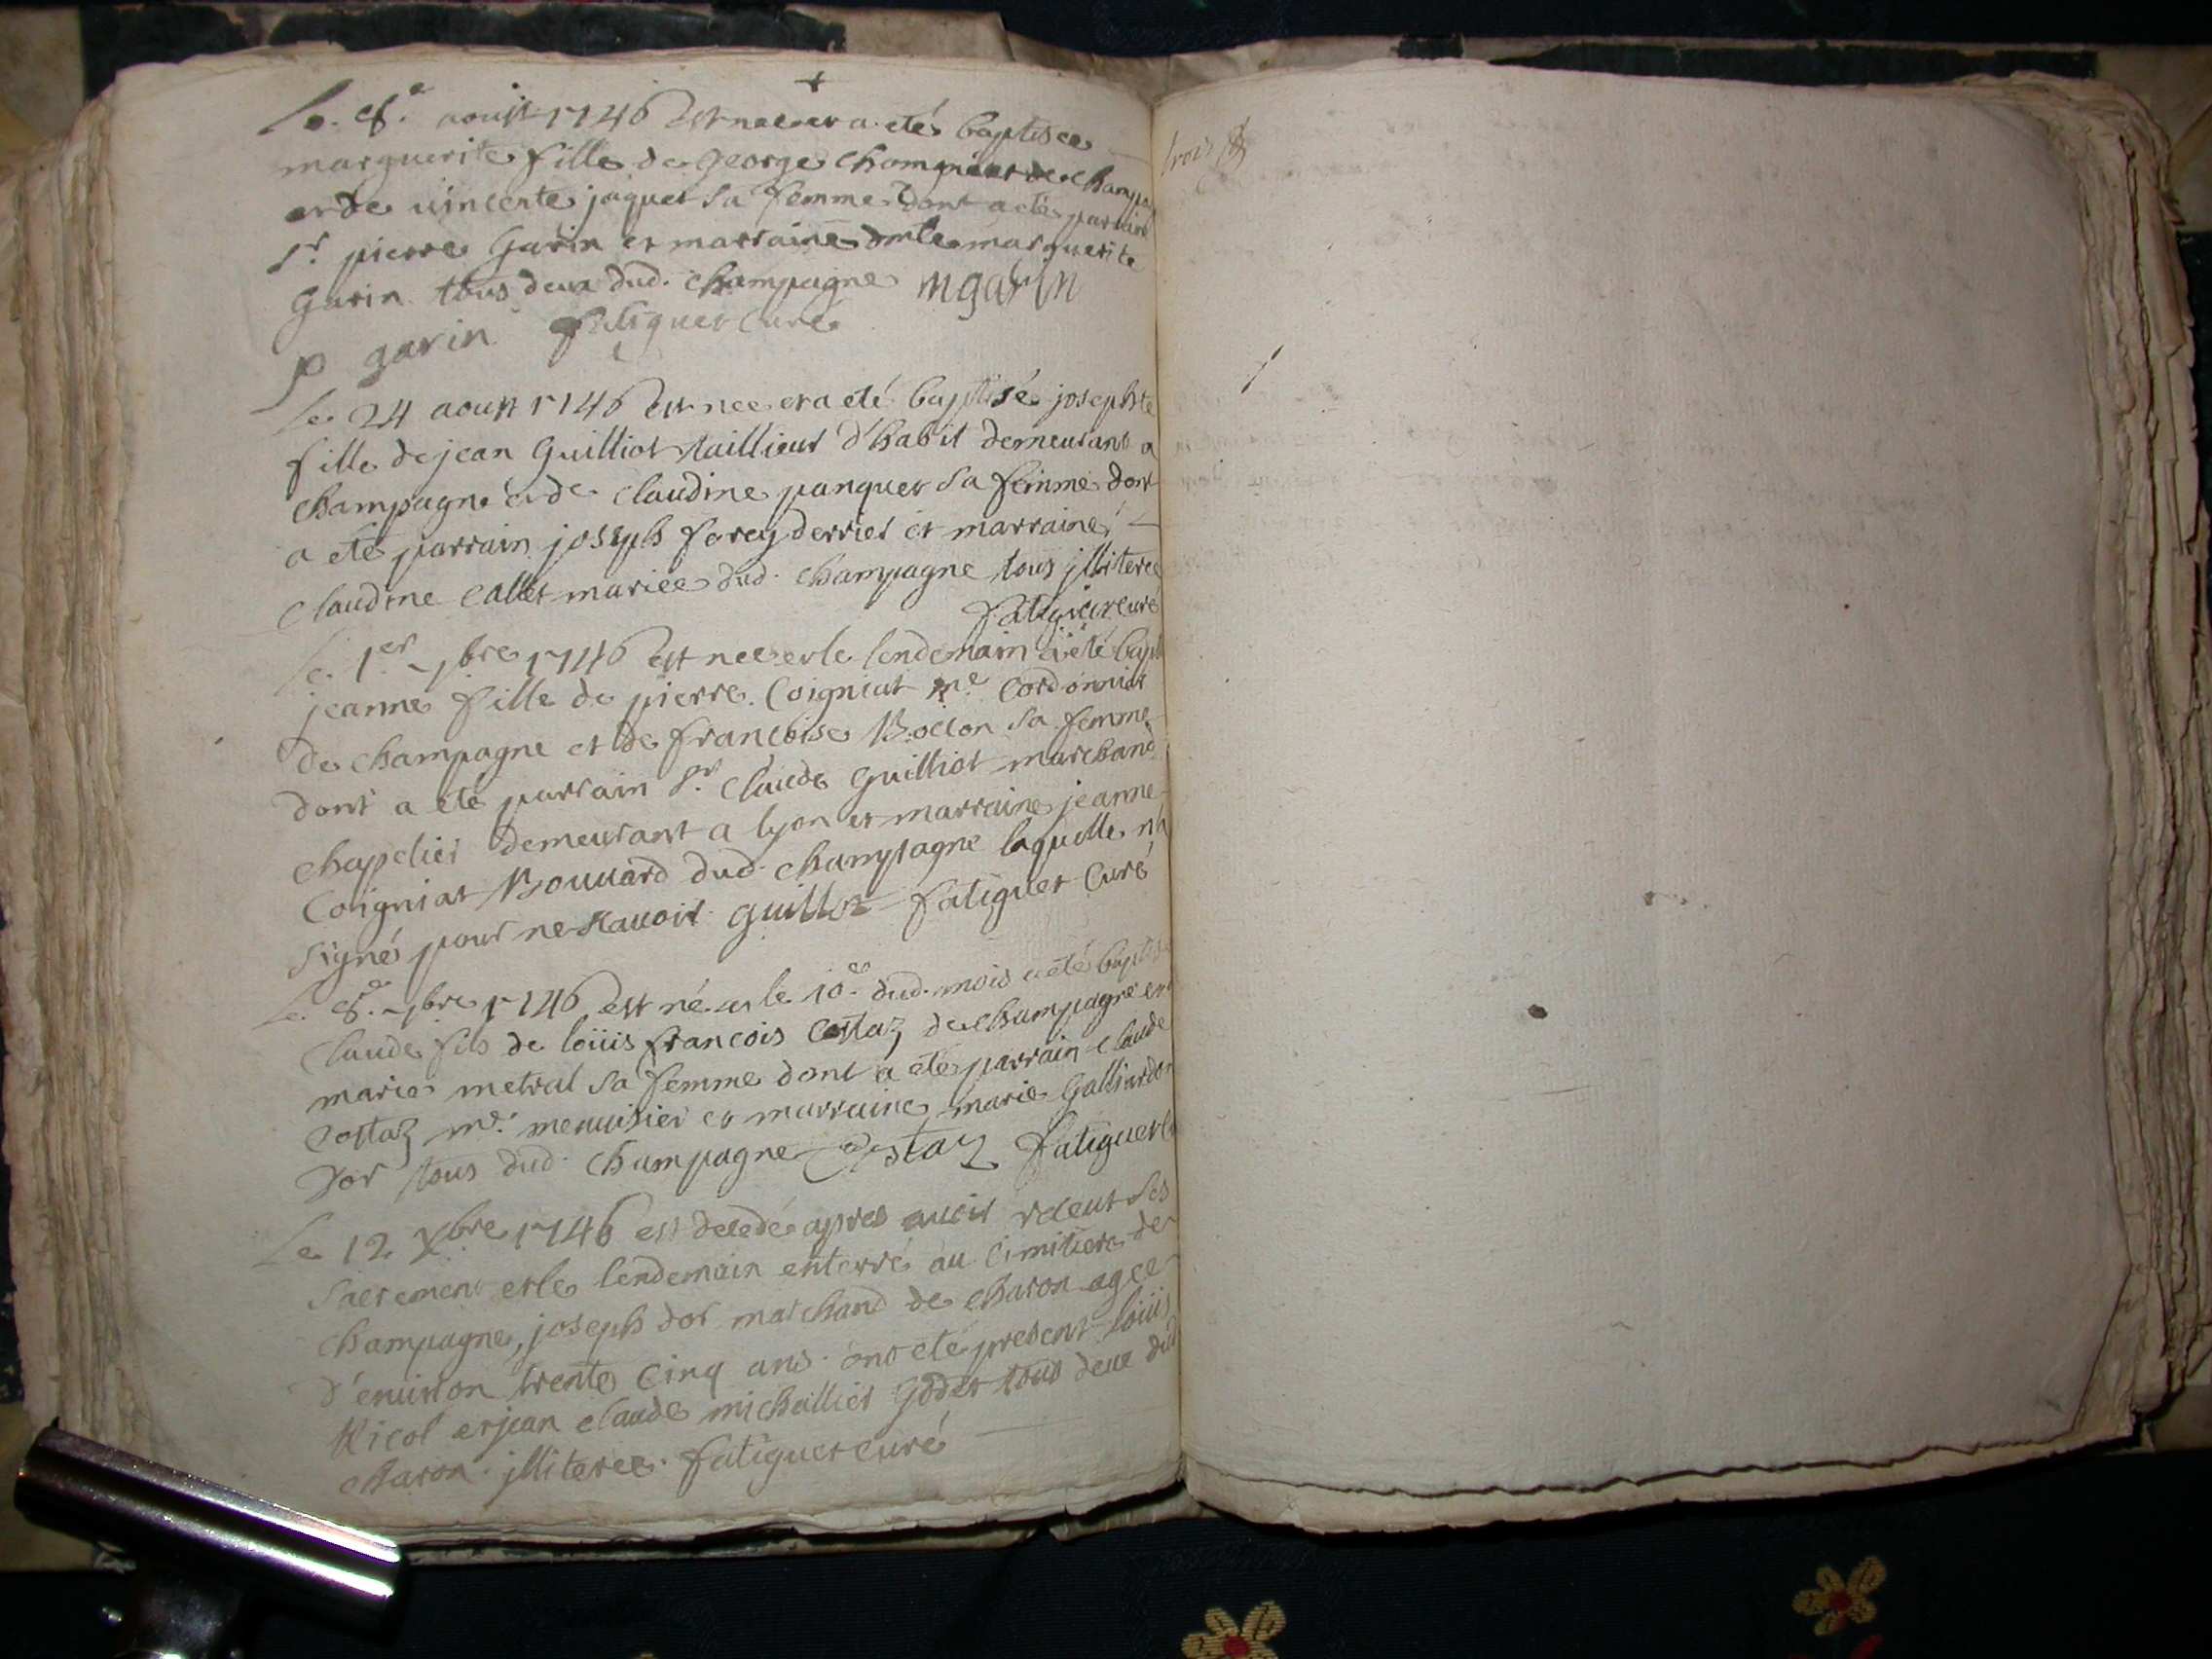 +
Le 8e aoust 1746 est nee et a eté baptisee
marguerite fille de George Chom de champa
et de vincente jaquet sa femme dont a eté parrain
Sr pierre Garin et marraine dmle marguerite
Garin tous deux dud. Champagne mgarin
p garin fatiguet Curé
Le 24 aoust 1746 est nee et a eté baptisé josephte
fille de jean Guilliot taillieur d'habit demeurant a
champagne et de Claudine panquet sa femme dont
a eté parrain joseph ferey derrier et marraine
Claudine Collet mariee dud. champagne tous jlliteree
fatiguet curé
Le 1er 7bre 1746 est nee et le lendemain a eté bapt
jeanne fille de pierre Coigniat me Cordonnier
de champagne et de francoise Boccon sa femme
dont a eté parrain Sr. Claude Guilliot marchand
chapelier demeurant a lyon et marraine jeanne
Coigniat Bouvard dud. champagne laquelle n'a
signé pour ne scavoir. guilliot fatiguet Curé
Le 8e 7bre 1746 est né et le 10e dud. mois a eté baptis
Claude fils de loüis francois Costaz de champagne et
marie metral sa femme dont a eté parrain claude
Costaz me. menuisier et marraine marie Galliardon
Dor tous dud. champagne Costaz fatiguet c
Le 12 Xbre 1746 est decedé apres avoir receut ses
sacrement et le lendemain enterré au Cimitiere de
champagne, joseph dor marchand de charon agee
d'environ trente Cinq ans. ont eté present loüis
Nicol et jean claude michallier Godet tous deux dud
charon. jlliteree. fatiguet curé
trois